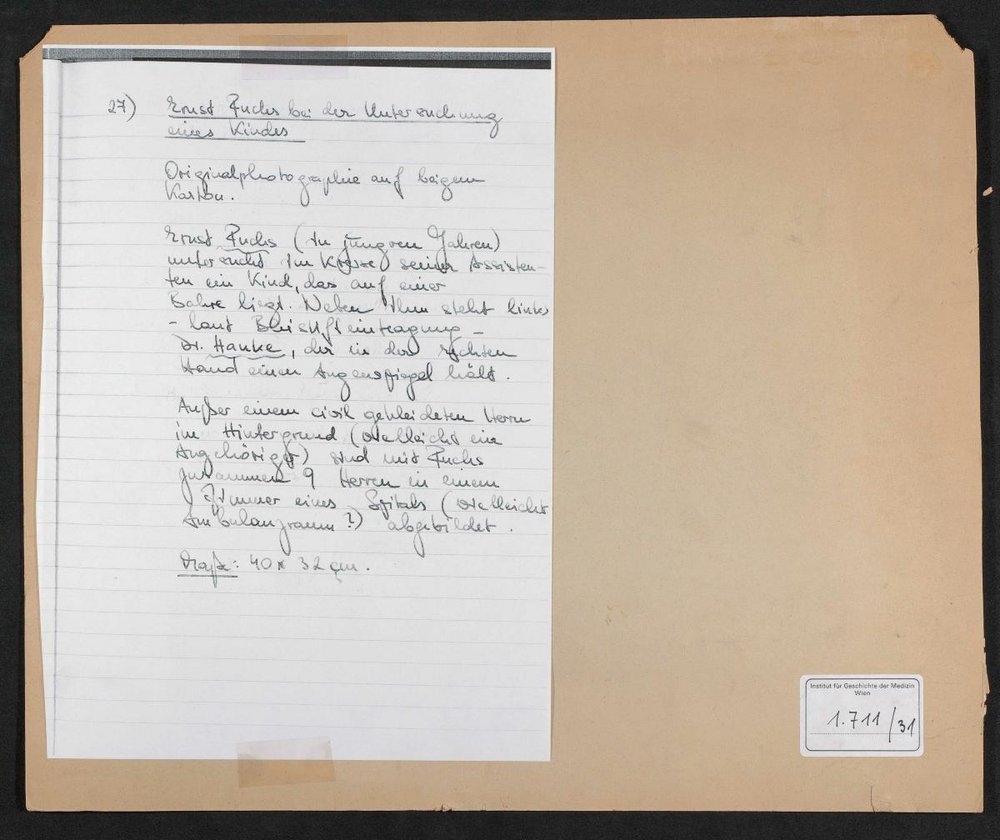 27) Ernst Fuchs bei der Untersuchung
eines Kindes
Originalphotographie auf beigem
Karton.
Ernst Fuchs (in jungen Jahren)
untersucht im Kreise seiner Assisten-
ten ein Kind, das auf einer
Bahre liegt. Neben ihm steht links
- laut Bleistifteintragung -
Dr. Hanke, der in der rechten
Hand einen Augenspiegel hält.
Außer einem civil gekleideten Herrn
im Hintergrund (vielleicht ein
Angehöriger) sind mit Fuchs
zusammen 9 Herren in einem
Zimmer eines Spitals (vielleicht
Ambulanzraum?) abgebildet.
Maße: 40 x 32 cm.
Institut für Geschichte der Medizin
Wien
1.711/31